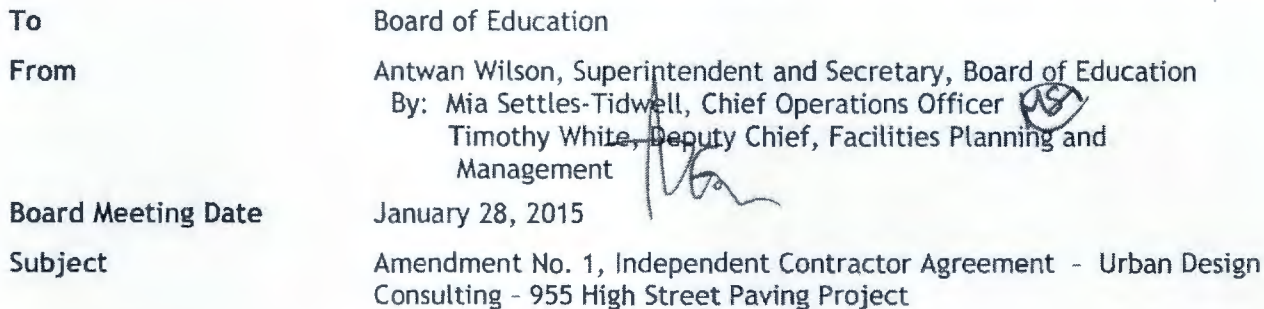 To Board of Education
From Antwan Wilson, Superintendent and Secretary, Board of Education
By: Mia Settles-Tidwell, Chief Operations Officer
Timothy White, Deputy Chief, Facilities Planning and
Management
Board Meeting Date January 28, 2015
Subject Amendment No. 1, Independent Contractor Agreement - Urban Design
Consulting - 955 High Street Paving Project